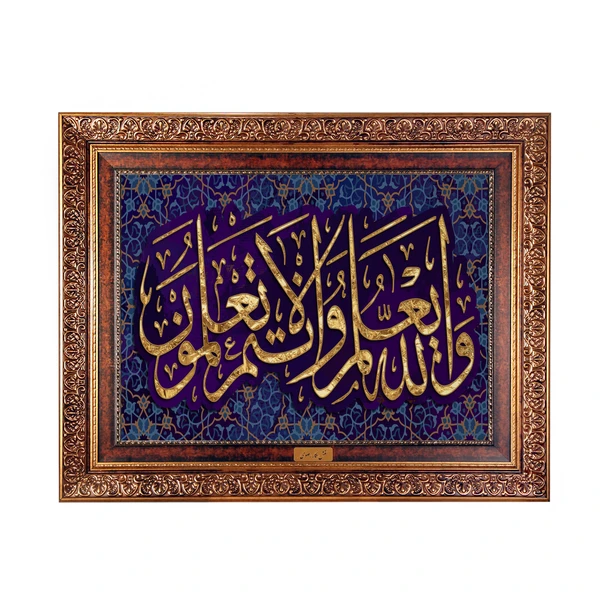 والله يعلم وانتم لا تعلمون